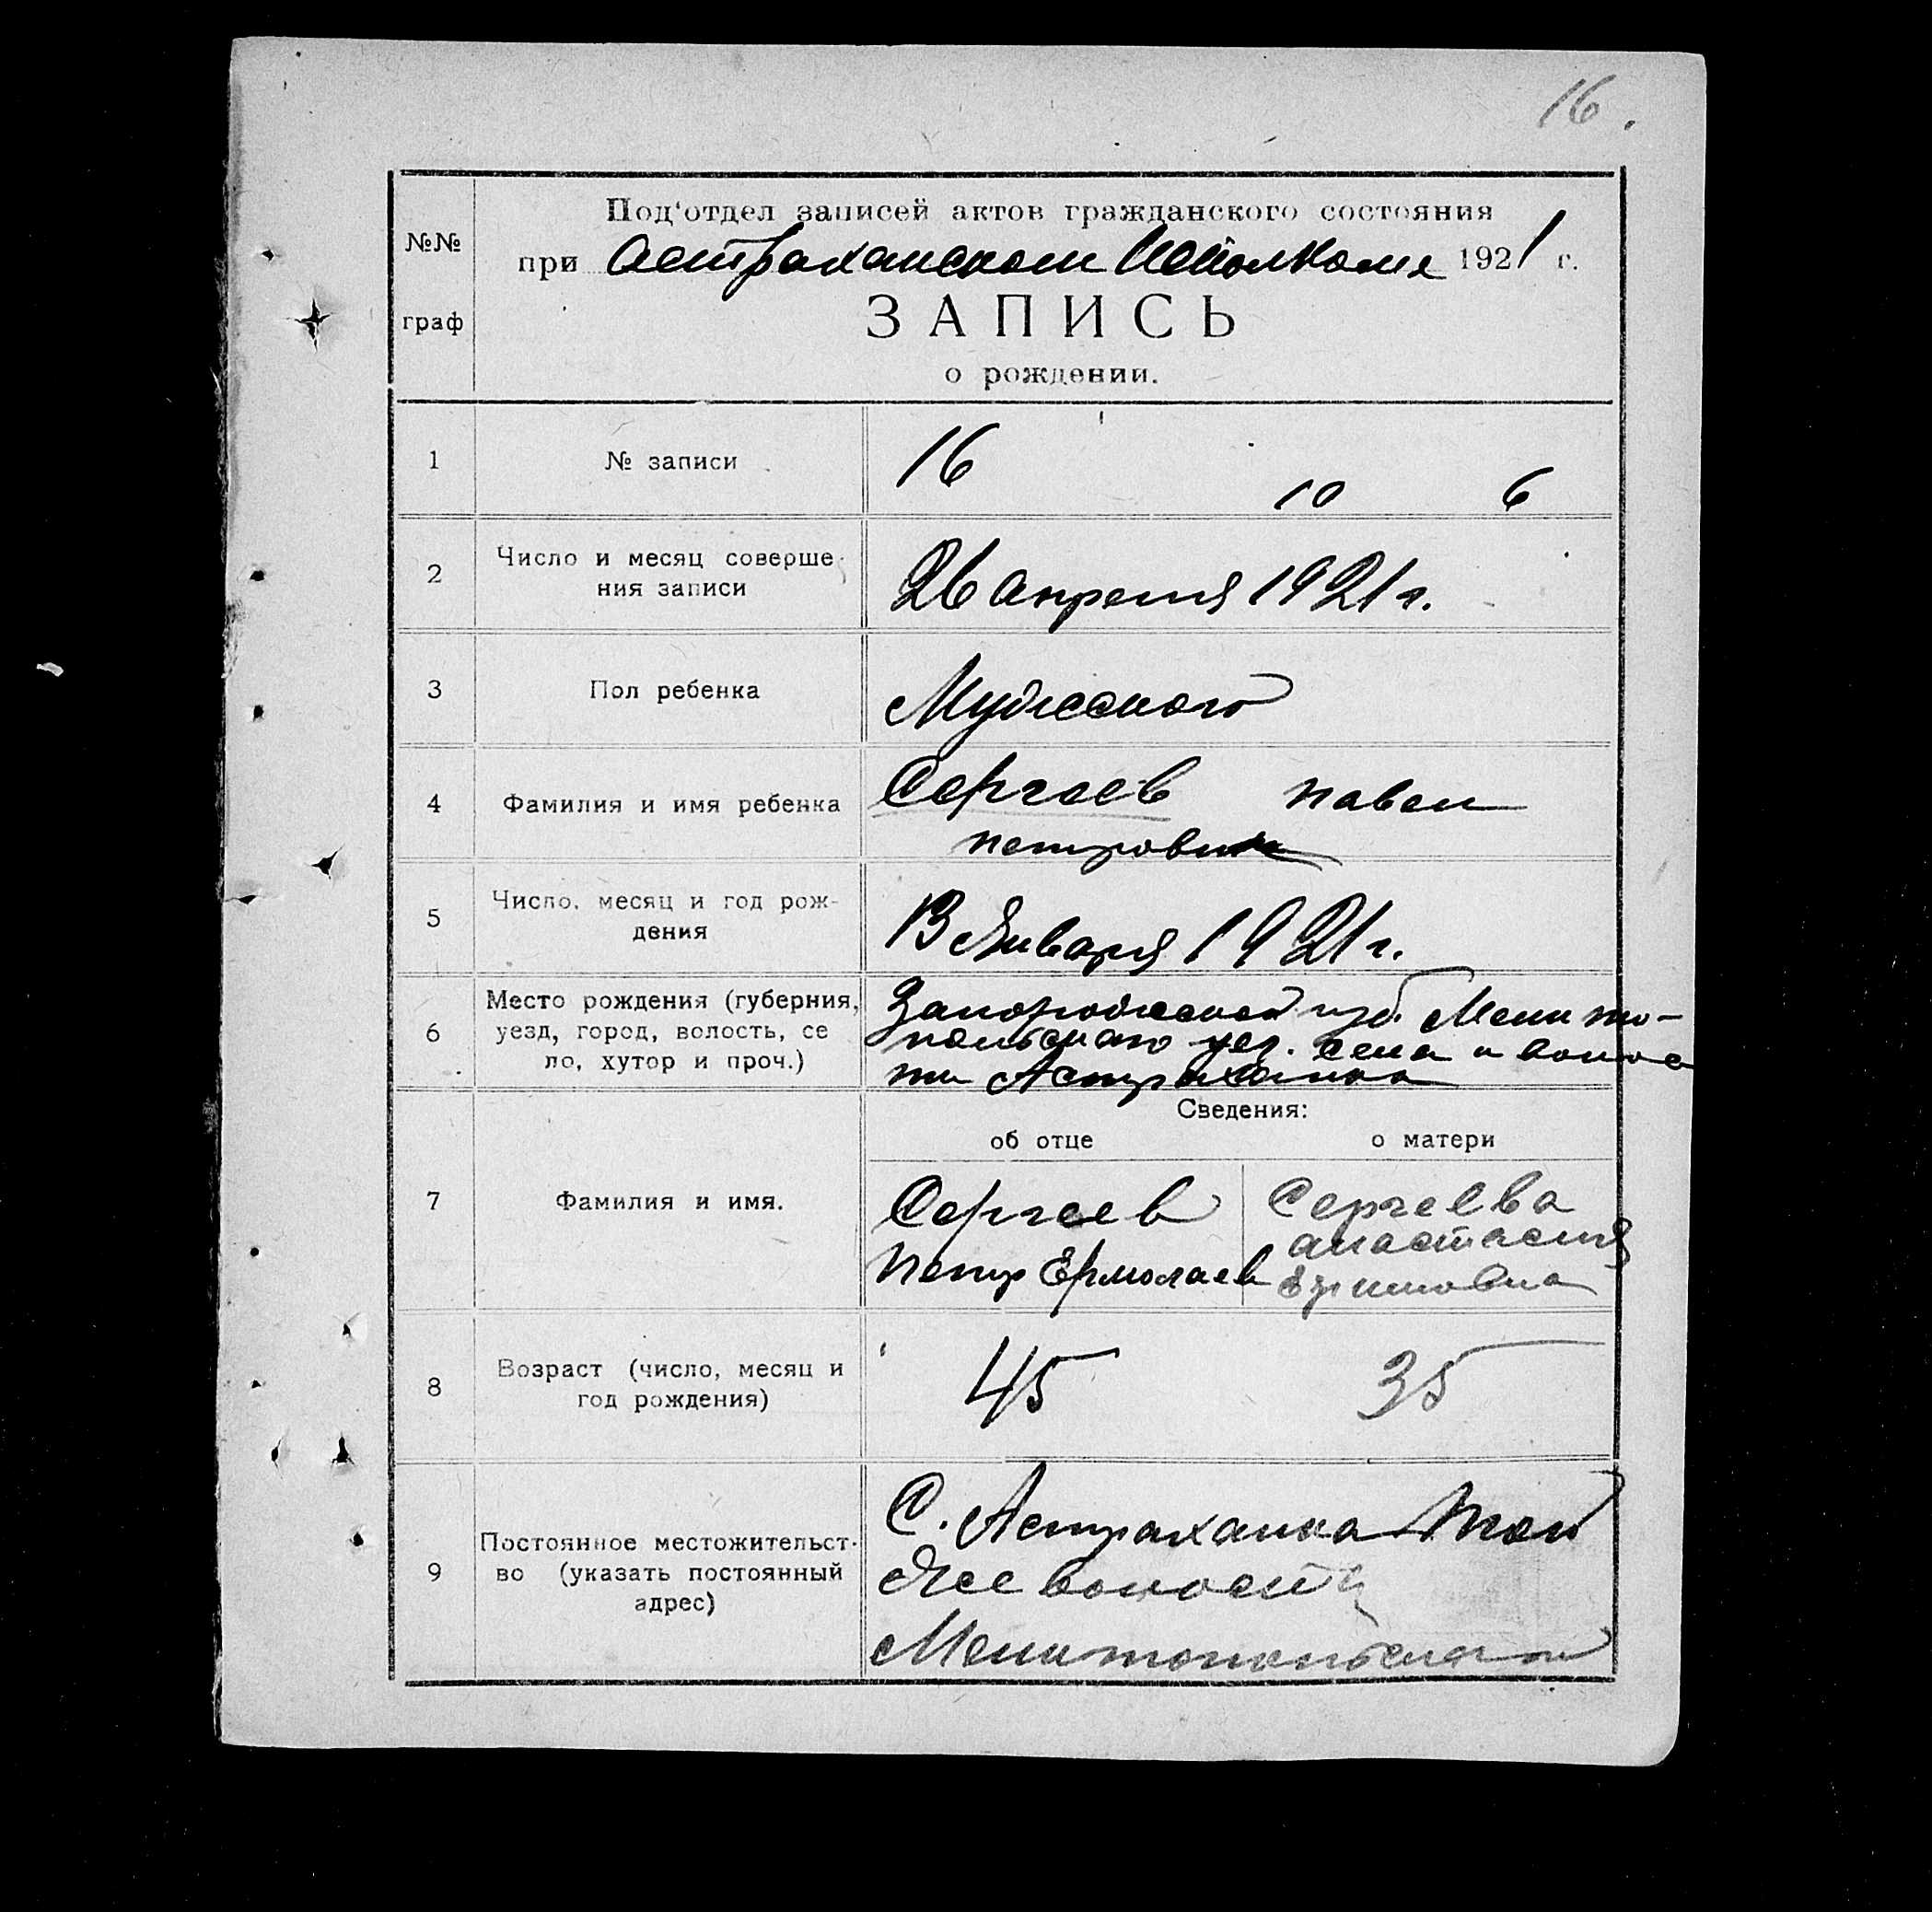 16.
№№
граф
Под'отдел записей актов гражданского состояния
при Астраханском Исполкоме 1921 г.
ЗАПИСЬ
о рождении.
1 № записи 16
10 6
2 Число и месяц соверше-
ния записи 26 Апреля 1921 г.
3 Пол ребенка Мужеского
4 Фамилия и имя ребенка Сергеев Павел
Петрович
5 Число, месяц и год рож-
дения 13 Января 1921 г.
6 Место рождения (губерния,
уезд, город, волость, се
ло, хутор и проч.)
Запорожской губ. Мелито-
польскаго уез. села и волос
ти Астраханка
Сведения:
об отце о матери
7 Фамилия и имя.
Сергеев Сергеева
Петр Ермолаев Анастасия
8 Возраст (число, месяц и
год рождения) 45 35
9 Постоянное местожительст-
во (указать постоянный
адрес)
С. Астраханка Той
Же волости
Мелитопольскаго